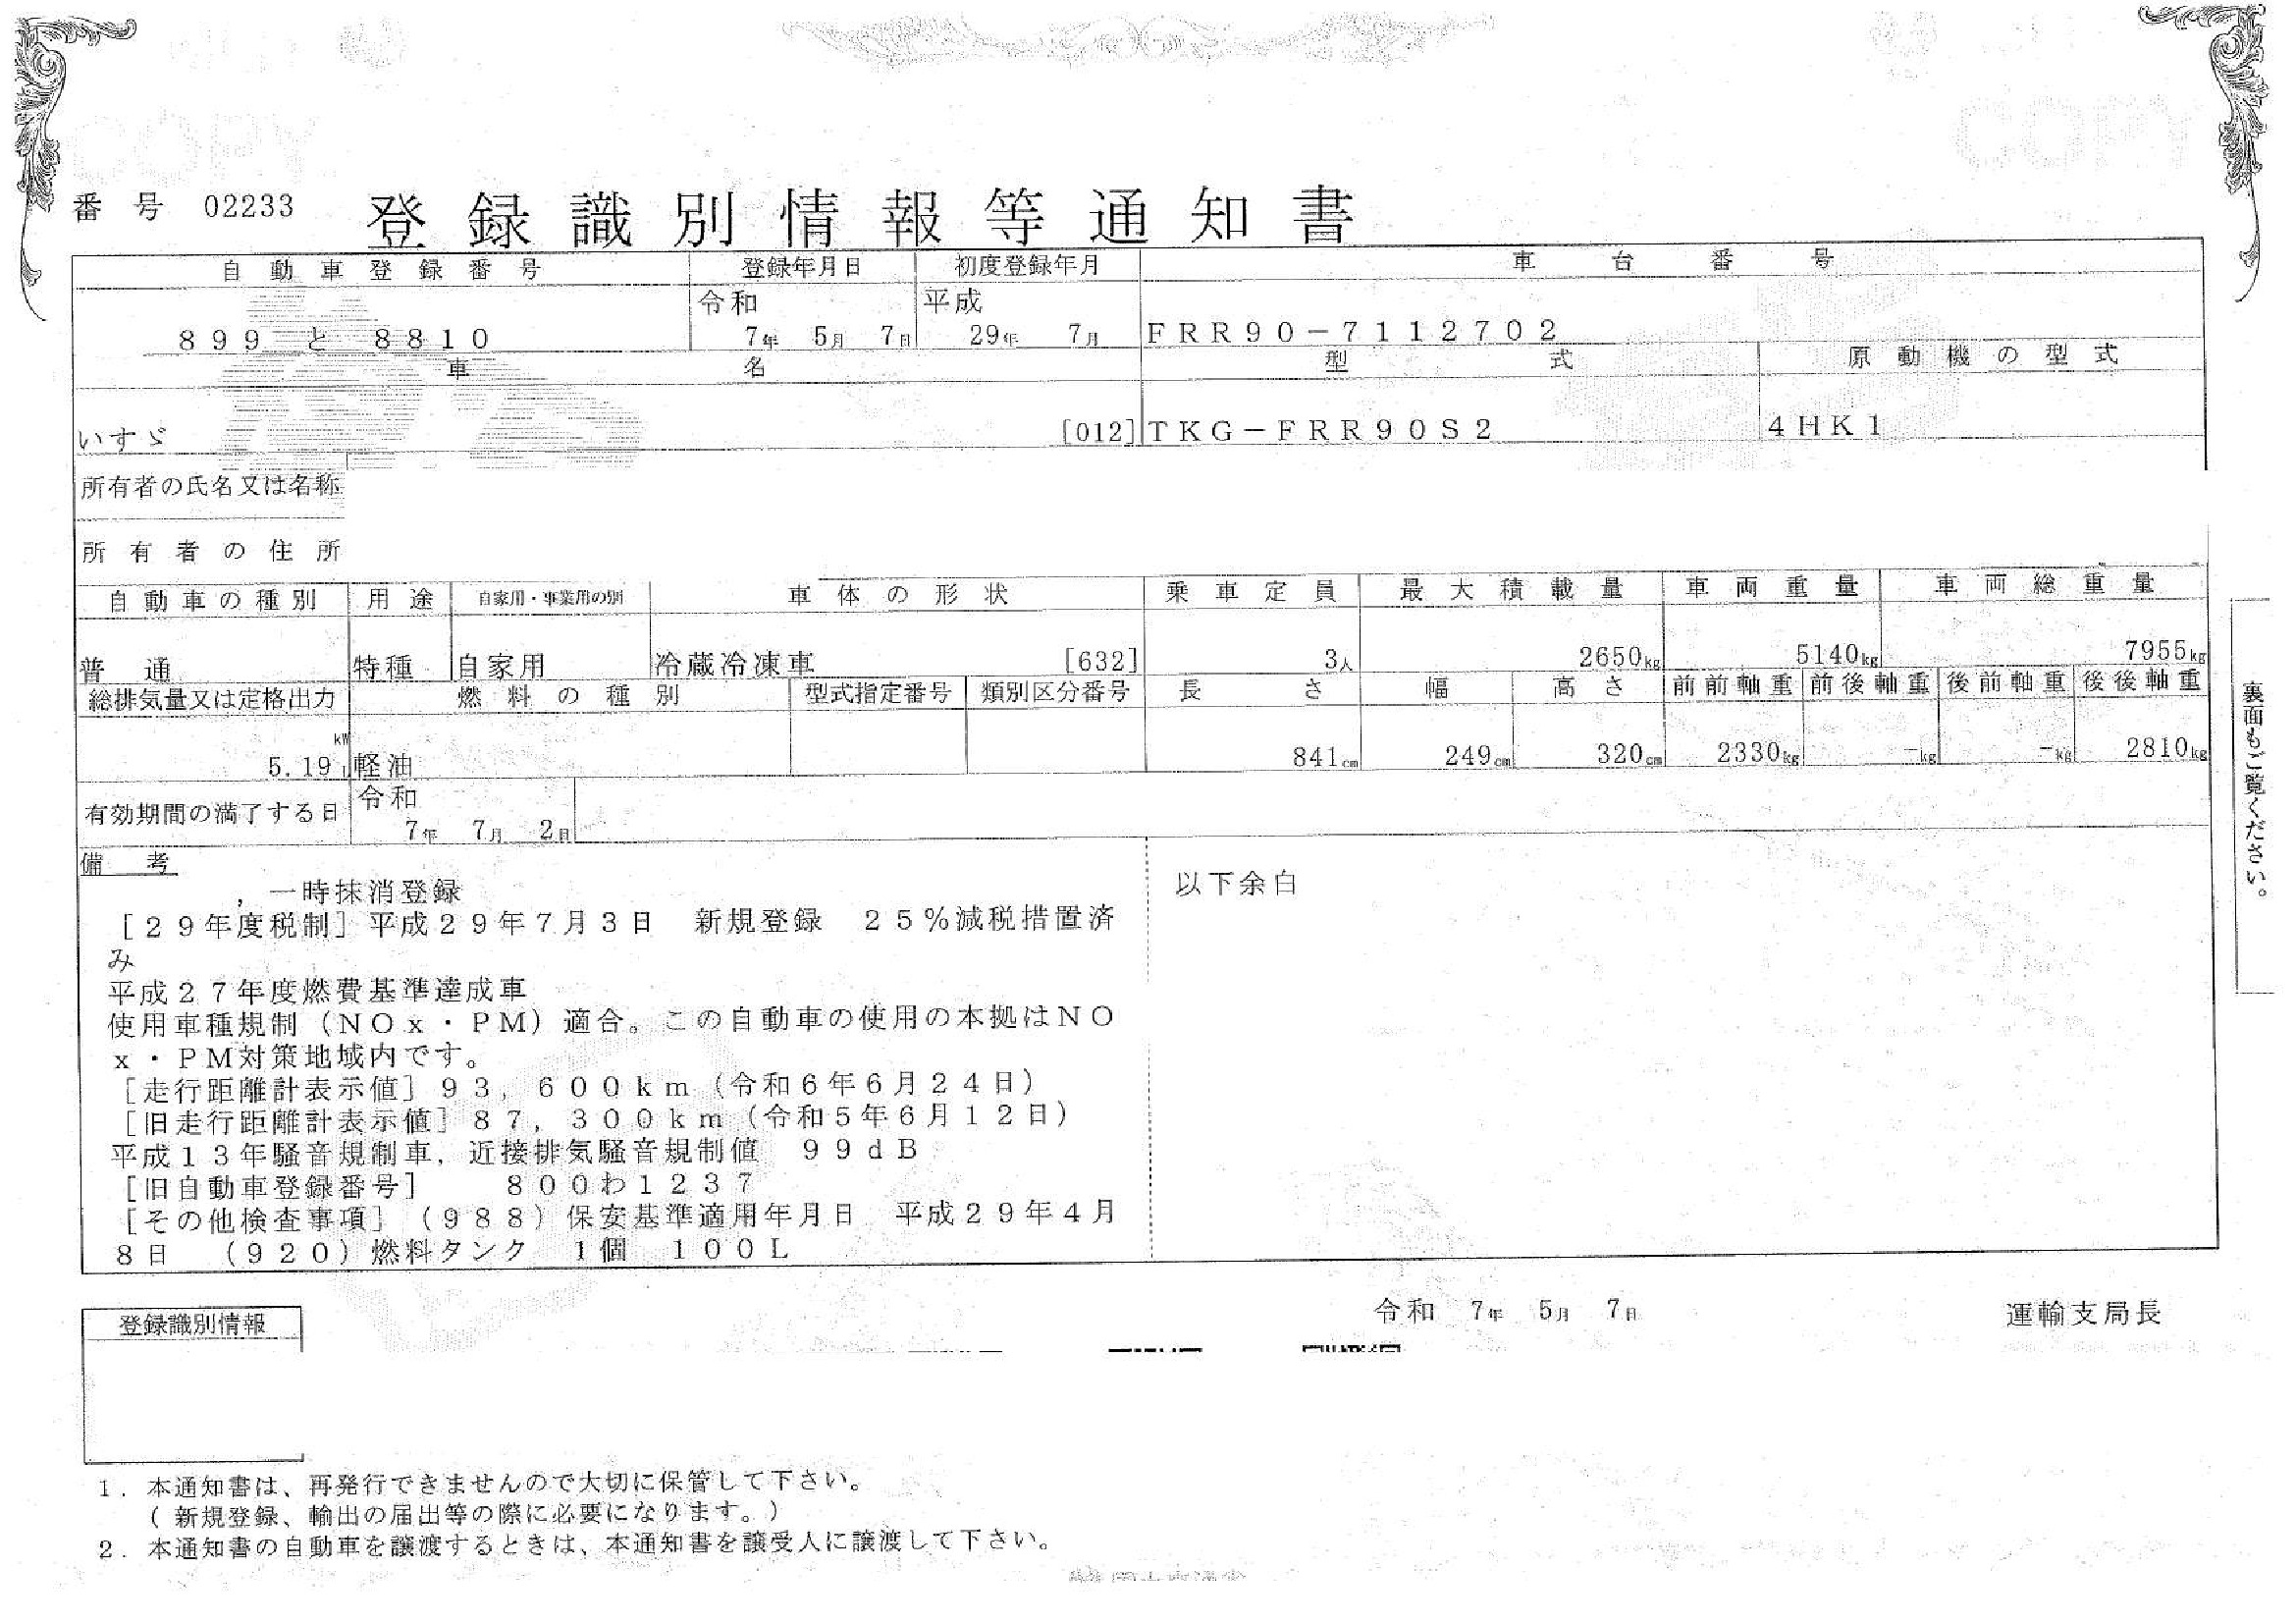 COPY
COPY
番号 02233 登録識別情報等通知書
自動車登録番号 登録年月日 初度登録年月 車台番号
令和 平成
899 と 8810 7年 5月 7日 29年 7月 FRR90-7112702
車名 型式 原動機の型式
いすゞ [012] TKG-FRR90S2 4HK1
所有者の氏名又は名称
所有者の住所
自動車の種別 用途 自家用・事業用の別 車体の形状 乗車定員 最大積載量 車両重量 車両総重量
普通 特種 自家用 冷蔵冷凍車 [632] 3人 2650kg 5140kg 7955kg
総排気量又は定格出力 燃料の種別 型式指定番号 類別区分番号 長さ 幅 高さ 前前軸重 前後軸重 後前軸重 後後軸重
kW
5.19 L 軽油 841cm 249cm 320cm 2330kg -kg -kg 2810kg
有効期間の満了する日 令和
7年 7月 2日
備考
,一時抹消登録
[29年度税制]平成29年7月3日 新規登録 25%減税措置済
み
平成27年度燃費基準達成車
使用車種規制(NOx・PM)適合。この自動車の使用の本拠はNO
x・PM対策地域内です。
[走行距離計表示値]93,600km(令和6年6月24日)
[旧走行距離計表示値]87,300km(令和5年6月12日)
平成13年騒音規制車,近接排気騒音規制値 99dB
[旧自動車登録番号] 800わ1237
[その他検査事項](988)保安基準適用年月日 平成29年4月
8日 (920)燃料タンク 1個 100L
以下余白
裏面もご覧ください。
令和 7年 5月 7日 運輸支局長
登録識別情報
1.本通知書は、再発行できませんので大切に保管して下さい。
(新規登録、輸出の届出等の際に必要になります。)
2.本通知書の自動車を譲渡するときは、本通知書を譲受人に譲渡して下さい。